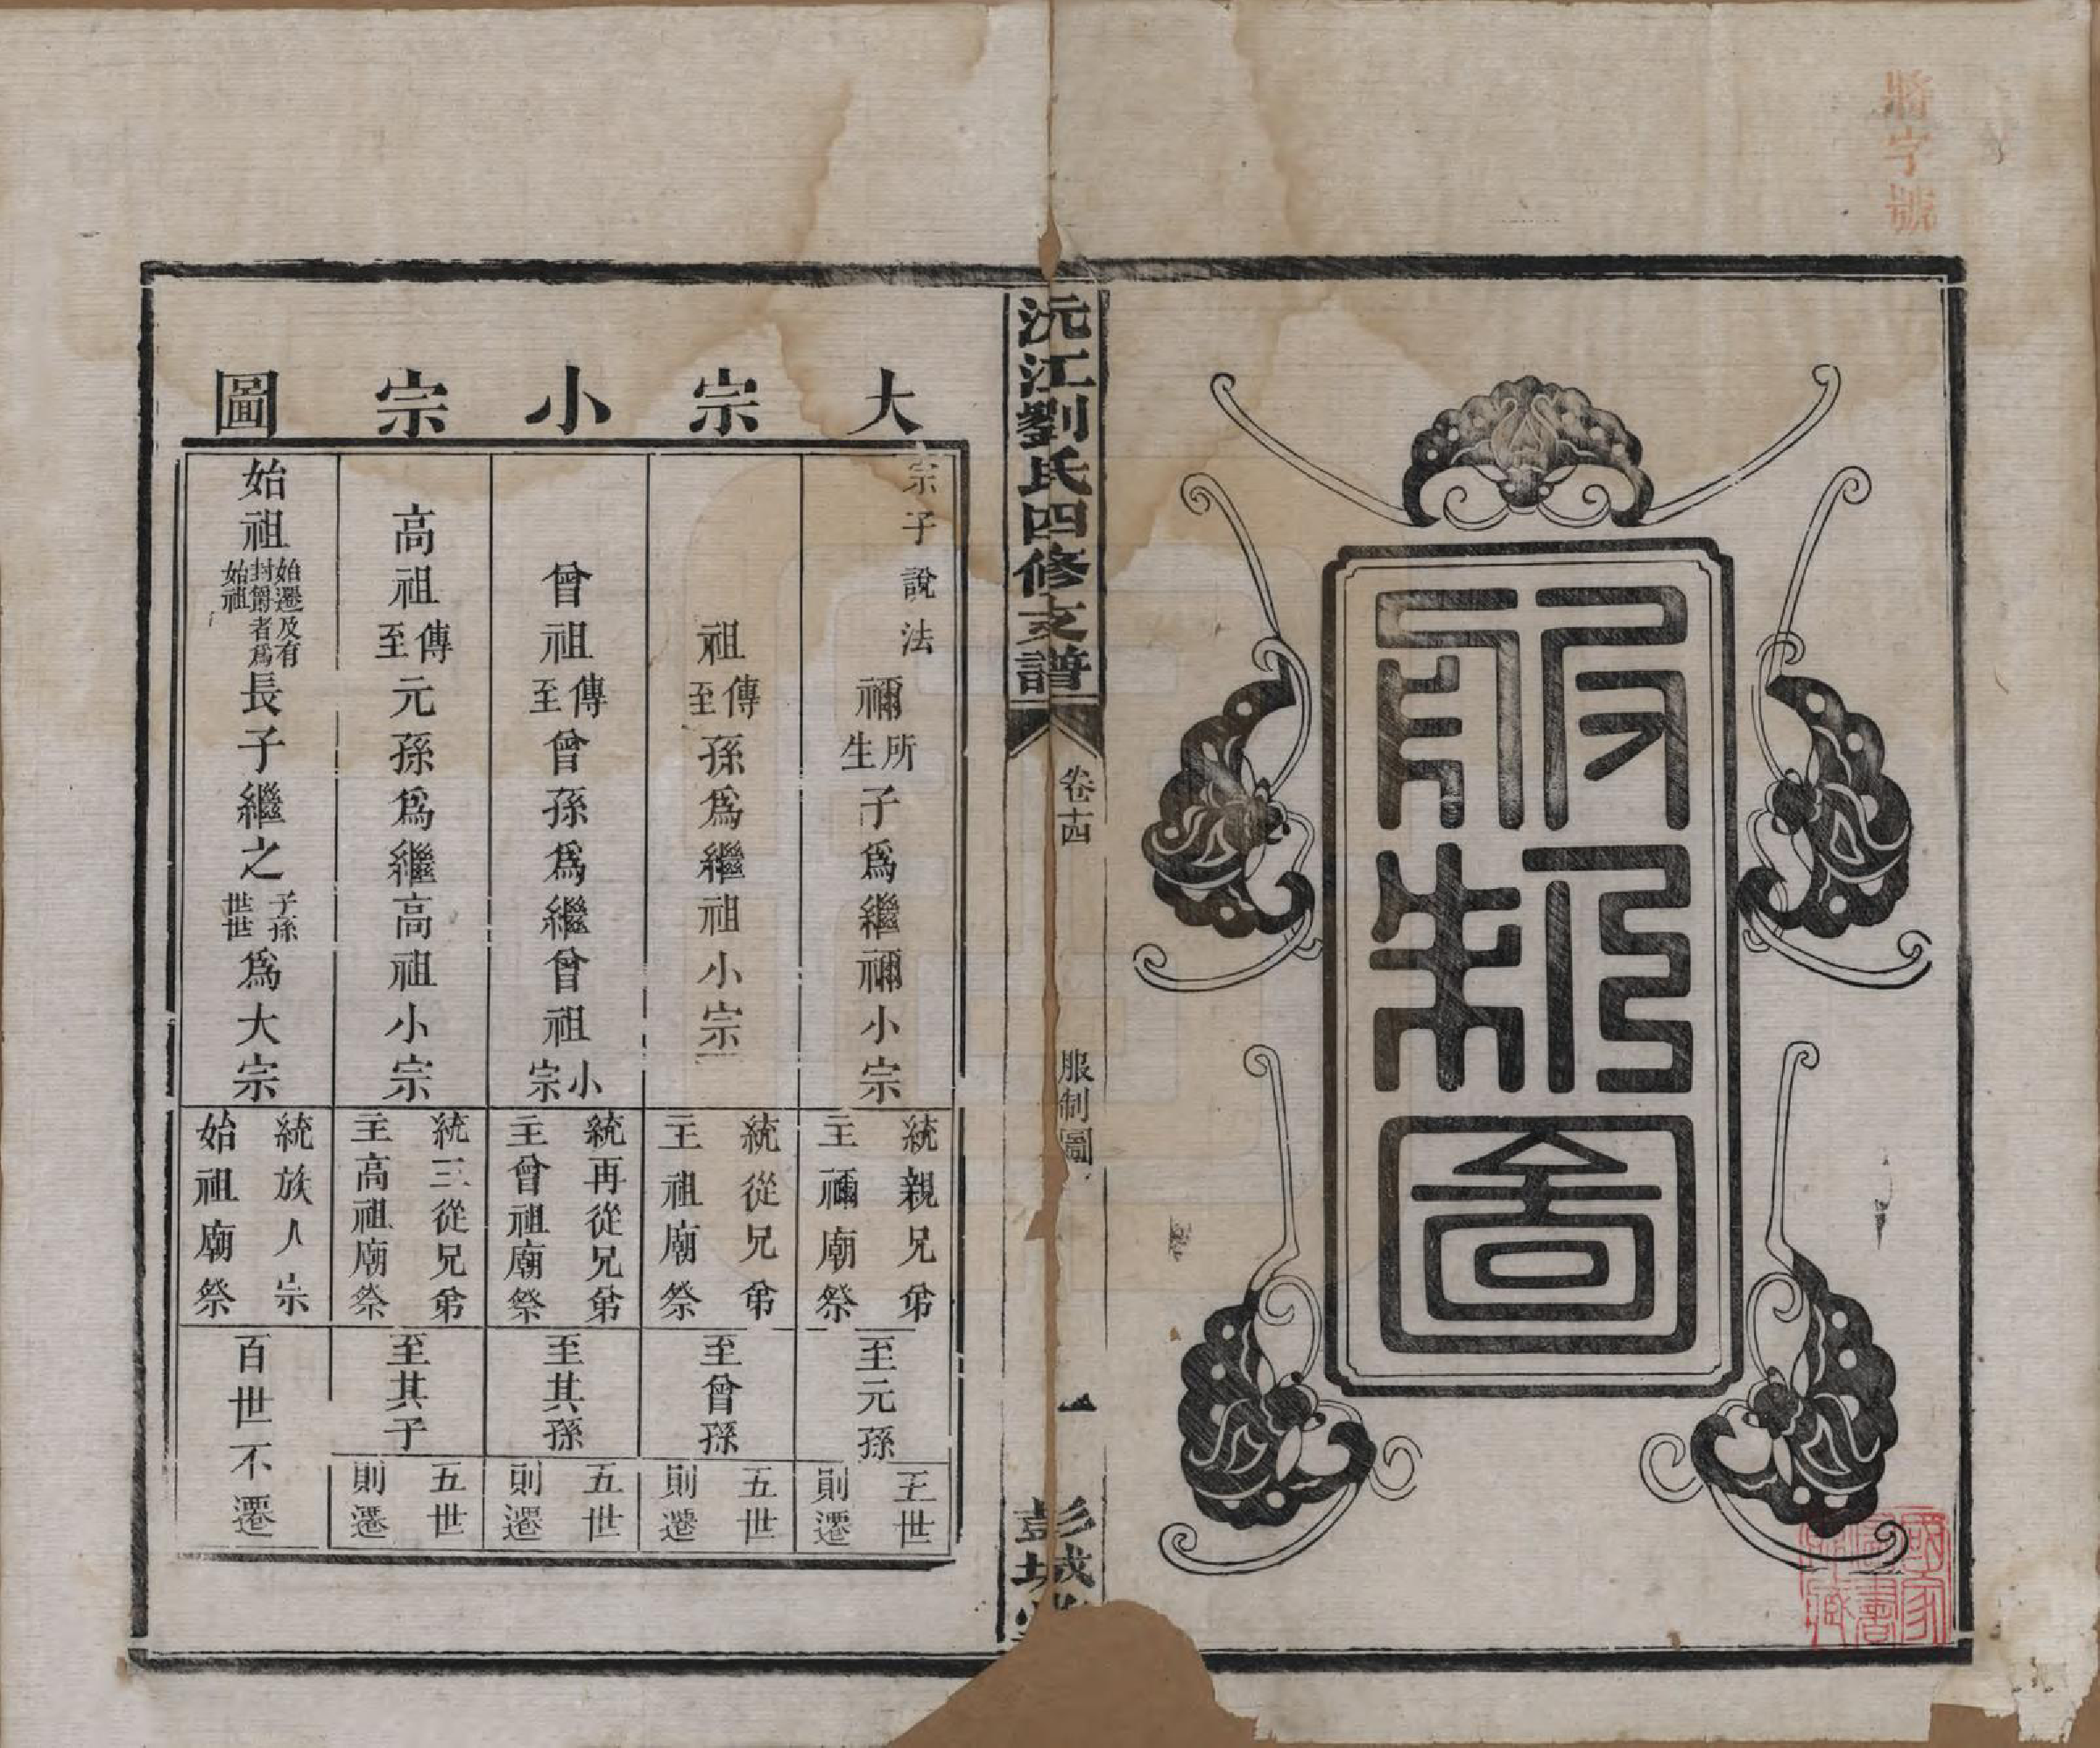 將字號
服制圖
國家
圖書
所藏
沅江劉氏四修支譜
卷十四
服制圖
一
彭城堂
大宗小宗圖
宗子說法
禰所生子爲繼禰小宗
統親兄弟
主禰廟祭
至元孫
五世
則遷
祖傳至孫爲繼祖小宗
統從兄弟
主祖廟祭
至曾孫
五世
則遷
曾祖傳至曾孫爲繼曾祖小宗
統再從兄弟
主曾祖廟祭
至其孫
五世
則遷
高祖傳至元孫爲繼高祖小宗
統三從兄弟
主高祖廟祭
至其子
五世
則遷
始祖始遷及有封爵者爲始祖長子繼之子孫世世爲大宗
統族人宗
始祖廟祭
百世不遷